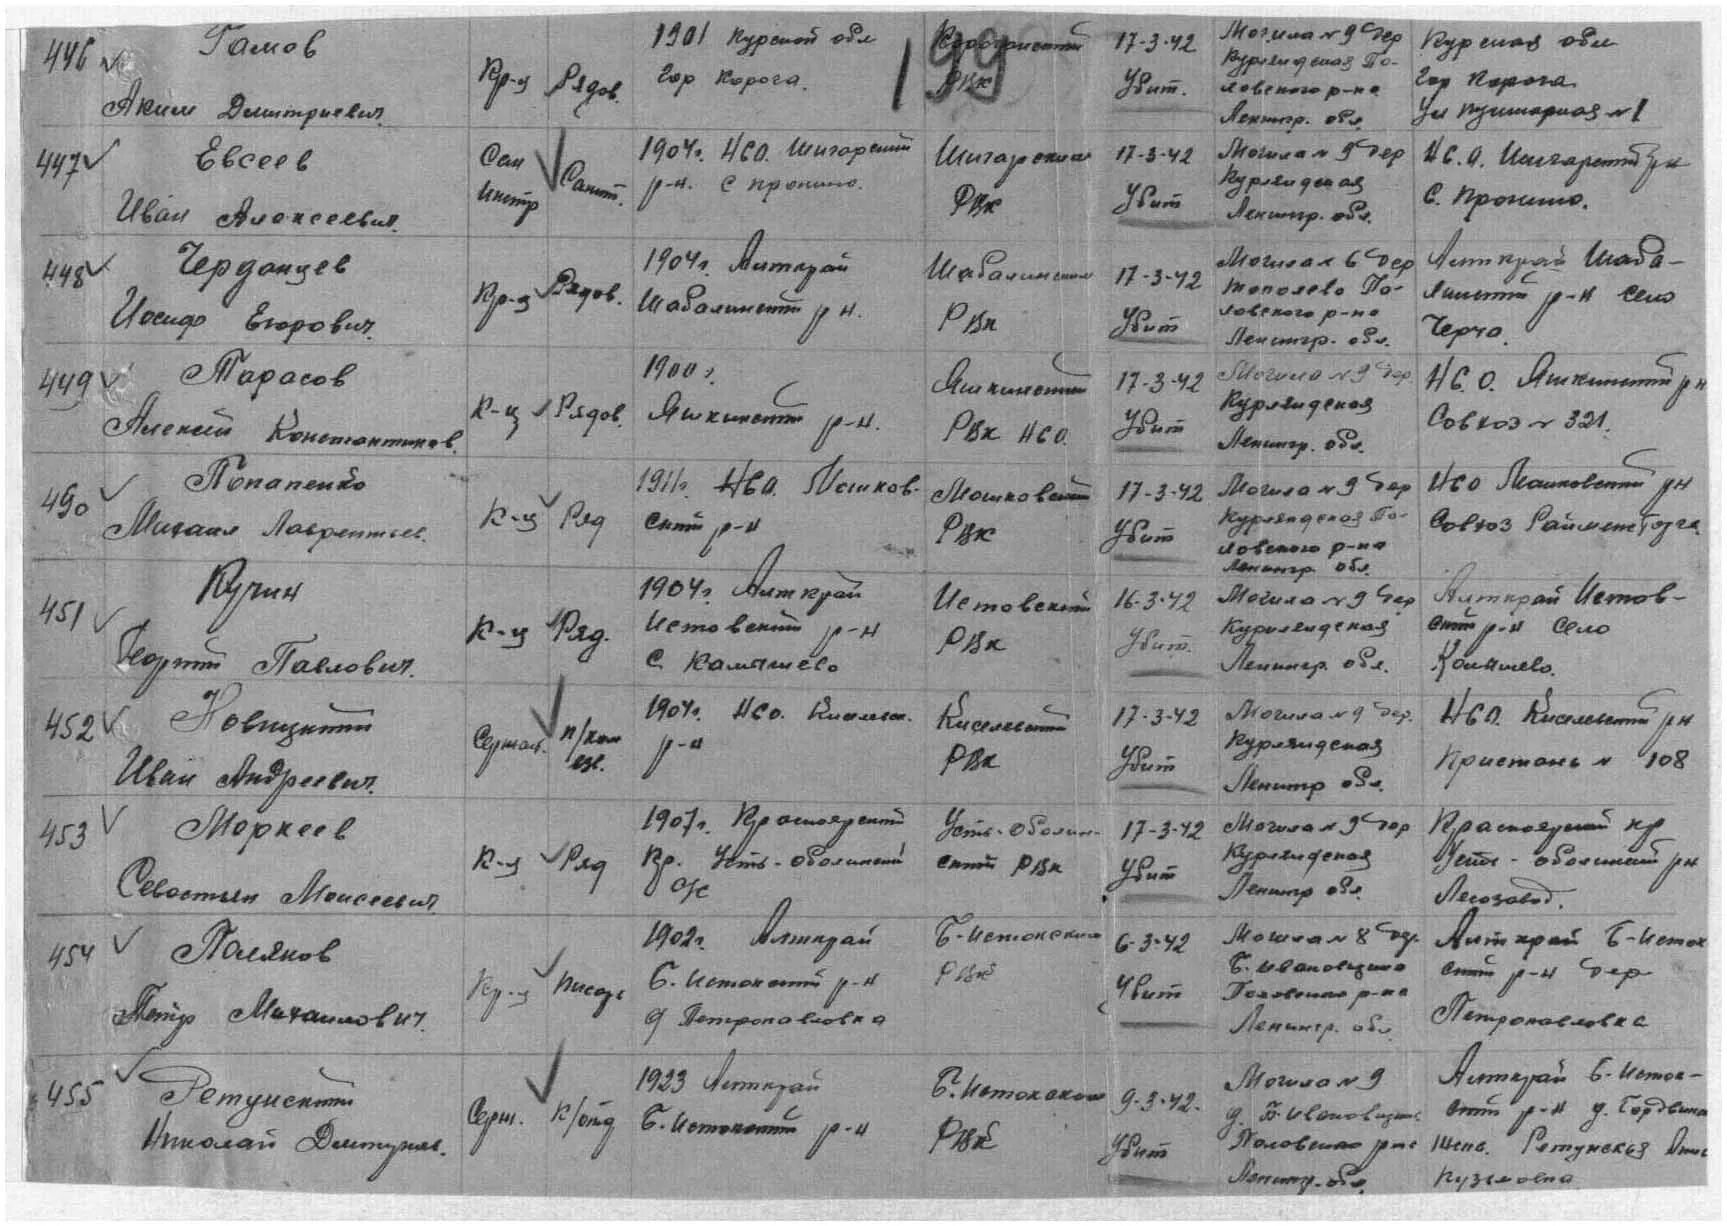 446 Гамов
Аким Дмитриевич.
Кр-ц Рядов.
1901 Курской обл
Гор Короча.
199
РВК
17-3-42
Убит.
Могила № 9 дер
Курляндская По-
ловского р-на
Ленингр. обл.
Курская обл
Гор Короча
Ул Пушкарная № 1
447 Евсеев
Иван Алексеевич.
Сан
инстр
Санит.
1904г. НСО. Шигарский
р-н. с Пронино.
Шигарским
РВК
17-3-42
Убит
Могила № 9 дер
Курляндская
Ленингр. обл.
НСО. Шигарский р-н
С. Пронино.
448 Черданцев
Иосиф Егорович.
Кр-ц Рядов.
1904г. Алткрай
Шабалинский р-н.
Шабалинским
РВК
17-3-42
Убит
Могила № 6 дер
Тополево По-
ловского р-на
Ленингр. обл.
Алткрай Шаба-
линский р-н село
449 Тарасов
Алексей Константинов.
К-ц Рядов.
1900г.
Яшкинский р-н.
Яшкинский
РВК НСО.
17-3-42
Убит
Могила № 9 дер.
Курляндская
Ленингр. обл.
НСО. Яшкинский р-н
Совхоз № 321.
490 Потапенко
Михаил Лаврентьев.
К-ц Ряд
1911г. НСО. Мошков-
ский р-н
Мошковский
РВК
17-3-42
Убит
Могила № 9 дер
Курляндская По-
ловского р-на
Ленингр. обл.
НСО Мошковский р-н
Совхоз
451 Кучин
Георгий Павлович.
К-ц Ряд.
1904г. Алткрай
Истовский р-н
С Камышево
Истовский
РВК
16-3-42
Убит.
Могила № 9 дер
Курляндская
Ленингр. обл.
Алткрай Истов-
ский р-н Село
Камышево.
452 Новицкий
Иван Андреевич.
Сержант.
п/ком
взв.
1904г. НСО. Киселев.
р-н
Киселевский
РВК
17-3-42
Убит
Могила № 9 дер.
Курляндская
Ленингр обл.
НСО. Киселевский р-н
Пристань № 108
453 Моркеев
Севостьян Моисеевич.
К-ц Ряд
1907г. Красноярский
Кр. Усть-аболинский
Усть-аболин-
ский РВК
17-3-42
Убит
Могила № 9 дер
Курляндская
Ленингр обл.
Красноярский кр
Усть-аболинский р-н
Лесозавод.
454 Поляков
Пётр Михаилович.
Кр-ц Писарь
1902г. Алткрай
Б-Истокский р-н
д Петропавловка
Б-Истокским
РВК
6-3-42
Убит
Могила № 8 дер.
Б. Ивановщина
Половского р-на
Ленингр. обл.
Алткрай Б-Исток
ский р-н дер
Петропавловка
455 Ретунский
Николай Дмитриев.
Серж. К/отд
1923 Алткрай
Б-Истокский р-н
Б-Истокским
РВК
9-3-42.
Убит
Могила № 9
д. Б-Ивановщина
Половского р-на
Ленингр. обл.
Алткрай Б-Исток-
ский р-н д.
Ретунская
Кузьмовна